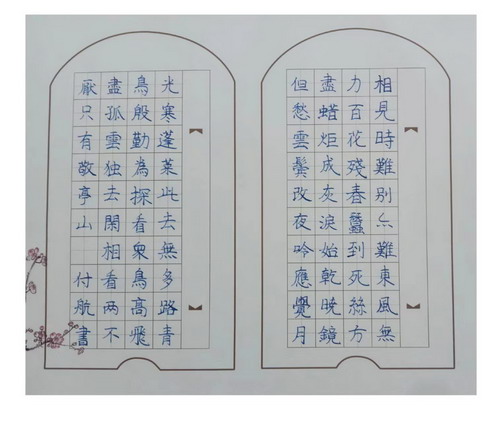 相見時難别亦難東風無
力百花殘春蠶到死絲方
盡蜡炬成灰淚始乾晓鏡
但愁雲鬢改夜吟應覺月
光寒蓬莱此去無多路青
鳥殷勤為探看衆鳥高飛
盡孤雲独去閑相看两不
厭只有敬亭山 付航書